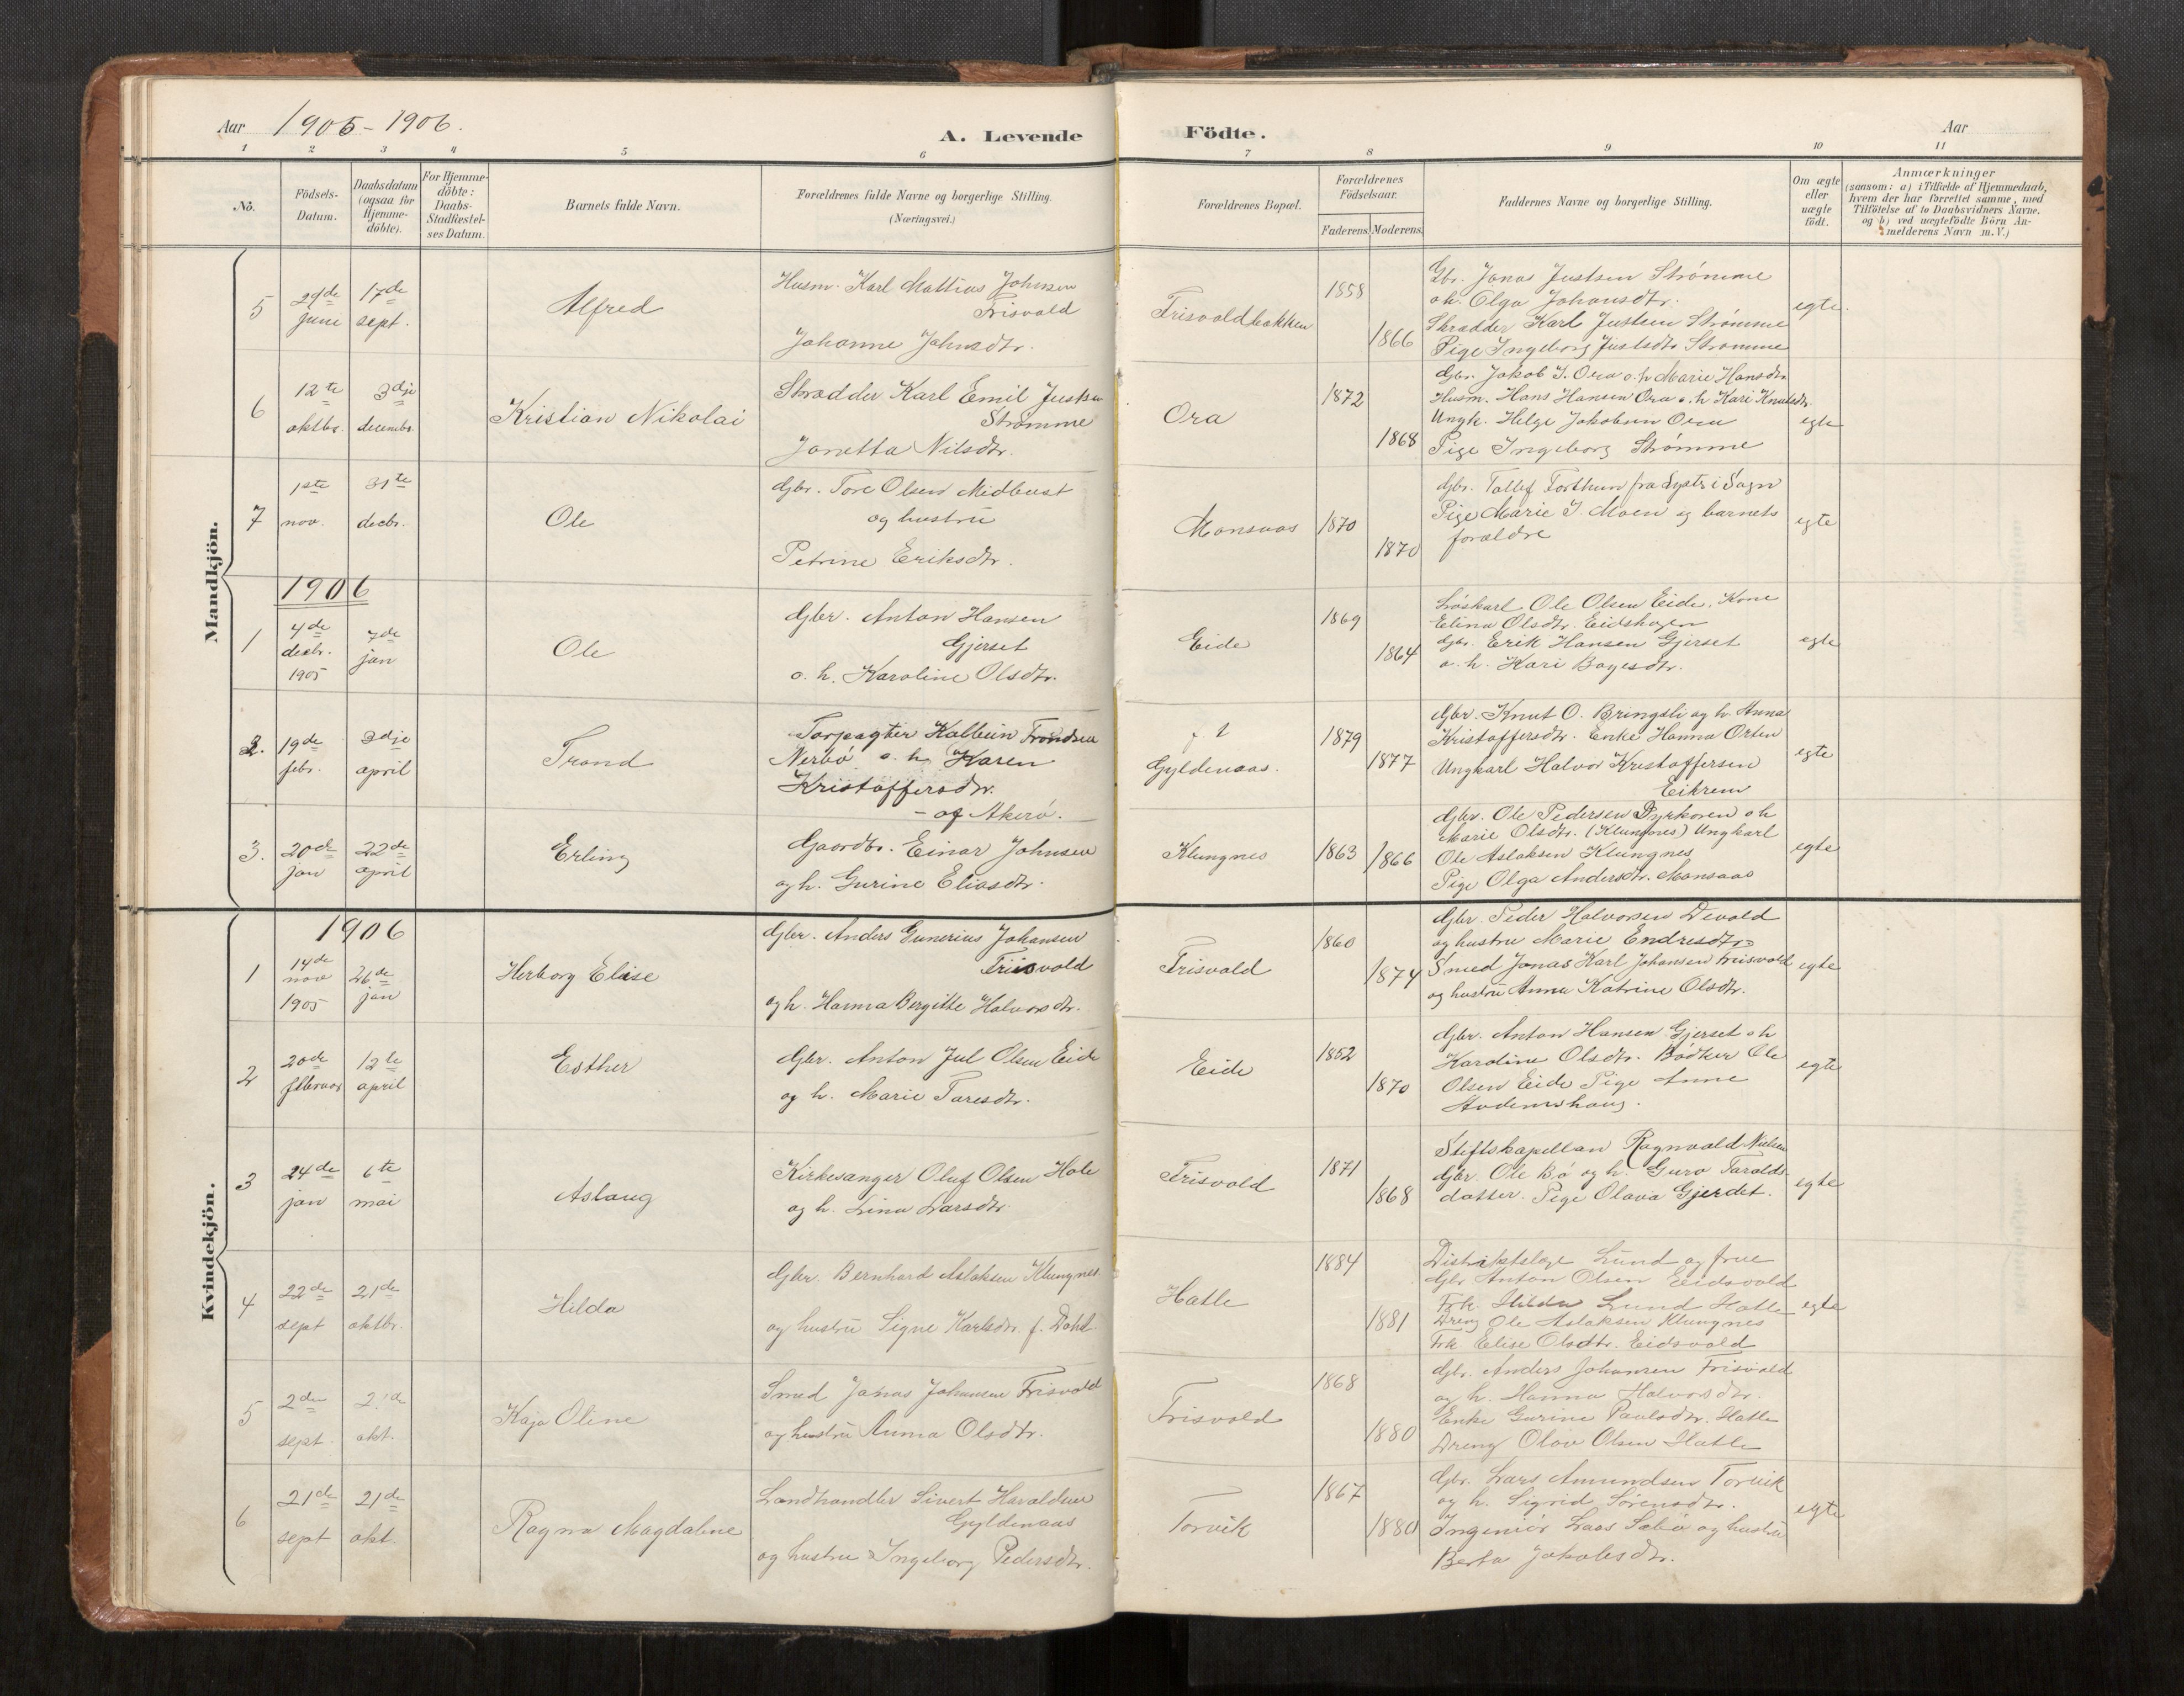 Aar 1905-1906.
A. Levende Födte.
Aar
1 2 3 4 5 6 7 8 9 10 11
No.
Födsels-Datum.
Daabsdatum (ogsaa for Hjemme-döbte).
For Hjemme-döbte: Daabs-Stadfæstel-ses Datum.
Barnets fulde Navn.
Forældrenes fulde Navne og borgerlige Stilling. (Næringsvei.)
Forældrenes Bopæl.
Forældrenes Födselsaar.
Faderens. Moderens.
Faddernes Navne og borgerlige Stilling.
Om ægte eller uægte födt.
Anmærkninger
(saasom: a) i Tilfælde af Hjemmedaab,
hvem der har forrettet samme, med
Tilföielse af to Daabsvidners Navne.
og b) ved uægtefödte Börn An-
melderens Navn m.V.)
Mandkjön.
5 29de juni 17de sept. Alfred
Husm. Karl Mattias Johnsen
Frisvold
Johanne Johnsdtr.
Frisvoldbakken 1858 1866
Gbr. Jonas Justsen Strømme
o h. Olga Johansdtr.
Skrædder Karl Justsen Strømme
Pige Ingeborg Justsdtr Strømme
egte.
6 12te oktbr. 3dje decembr. Kristian Nikolai
Skrædder Karl Emil Justsen
Strømme
Jonetta Nilsdtr.
Ora 1872 1868
Gbr. Jakob J. Ora o. h Marie Hansdtr
Husm. Hans Hansen Ora o. h Kari Knutsdtr.
Ungk. Helge Jakobsen Ora
Pige Ingeborg Strømme
egte
7 1ste nov. 31te decbr. Ole
Gbr. Tore Olsen Midbust
og hustru
Petrine Eriksdtr.
Monsaas 1870 1870
Gbr. Tollef Forthun fra Lyster i Sogn
Pige Marie J. Moen og barnets
forældre
egte
1906
1 4de decbr. 1905 7de jan Ole
Gbr. Anton Hansen
Gjerset
o. h. Karoline Olsdtr.
Eide 1869 1864
Löskarl Ole Olsen Eide, Kone
Elina Olsdtr. Eidshagen
Gbr. Erik Hansen Gjerset
o. h. Kari Boyesdtr.
egte
2. 19de febr. 3dje april Trond
Forpagter Kolbein Trondsen
Nerbö o. h. Karen
Kristoffersdtr.
- af Akerö.
Gyldenaas. 1879 1877
Gbr. Knut O. Bringsli og h. Anna
Kristoffersdtr. Enke Hanna Orten
Ungkarl Halvor Kristoffersen
Eikrem
egte
3. 20de jan 22de april Erling
Gaardbr. Einar Johnsen
og h. Gurine Eliasdtr.
Klungnes 1863 1866
Gbr. Ole Pedersen Dyrkoren o h
Marie Olsdtr. (Klungnes) Ungkarl
Ole Aslaksen Klungnes
Pige Olga Andersdtr. Monsaas
egte
Kvindekjön.
1906
1 14de nov 1905 26de jan Herborg Elise
Gbr. Anders Gunerius Johansen
Frisvold
og h. Hanna Bergitte Halvorsdtr.
Frisvold 1860 1874
Gbr. Peder Halvorsen Devold
og hustru Marie Endresdtr
Smed Jonas Karl Johansen Frisvold
og hustru Anna Katrine Olsdtr.
egte
2 20de februar 12te april Esther
Gbr. Anton Jul Olsen Eide
og h. Marie Toresdtr.
Eide 1852 1870
Gbr. Anton Hansen Gjerset o h
Karoline Olsdtr. Bödker Ole
Olsen Eide Pige Anne
egte
3 24de jan 6te mai Aslaug
Kirkesanger Oluf Olsen Hole
og h. Lina Larsdtr.
Frisvold 1871 1868
Stiftskapellan Ragnvald Nielsen
Gbr. Ole Bö og h. Guro Tarolds
datter. Pige Olava Gjerdet.
egte
4 22de sept 21de oktbr. Hilda
Gbr. Bernhard Aslaksen Klungnes
og hustru Signe Karlsdtr. f. Dahl.
Hatle 1884 1881
Distriktslæge Lund og frue
Gbr Anton Olsen Eidsvold
Frk. Hilda Lund Hatle
Dreng Ole Aslaksen Klungnes
Frk Elise Olsdtr. Eidsvold
egte
5 2den sept. 21de okt. Kaja Oline
Smed Jonas Johansen Frisvold
og hustru Anna Olsdtr.
Frisvold 1868 1880
Gbr. Anders Johansen Frisvold
og h. Hanna Halvorsdtr.
Enke Gurine Paulsdtr. Hatle
Dreng Olav Olsen Hatle
6 21de sept 21de okt. Ragna Magdaline
Landhandler Sivert Haraldsen
Gyldenaas
og hustru Ingeborg Pedersdtr.
Torvik 1867 1880
Gbr. Lars Amundsen Torvik
og h. Sigrid Sörensdtr.
Ingeniör Lars Sæbö og hustru
Berta Jakobsdtr.
egte